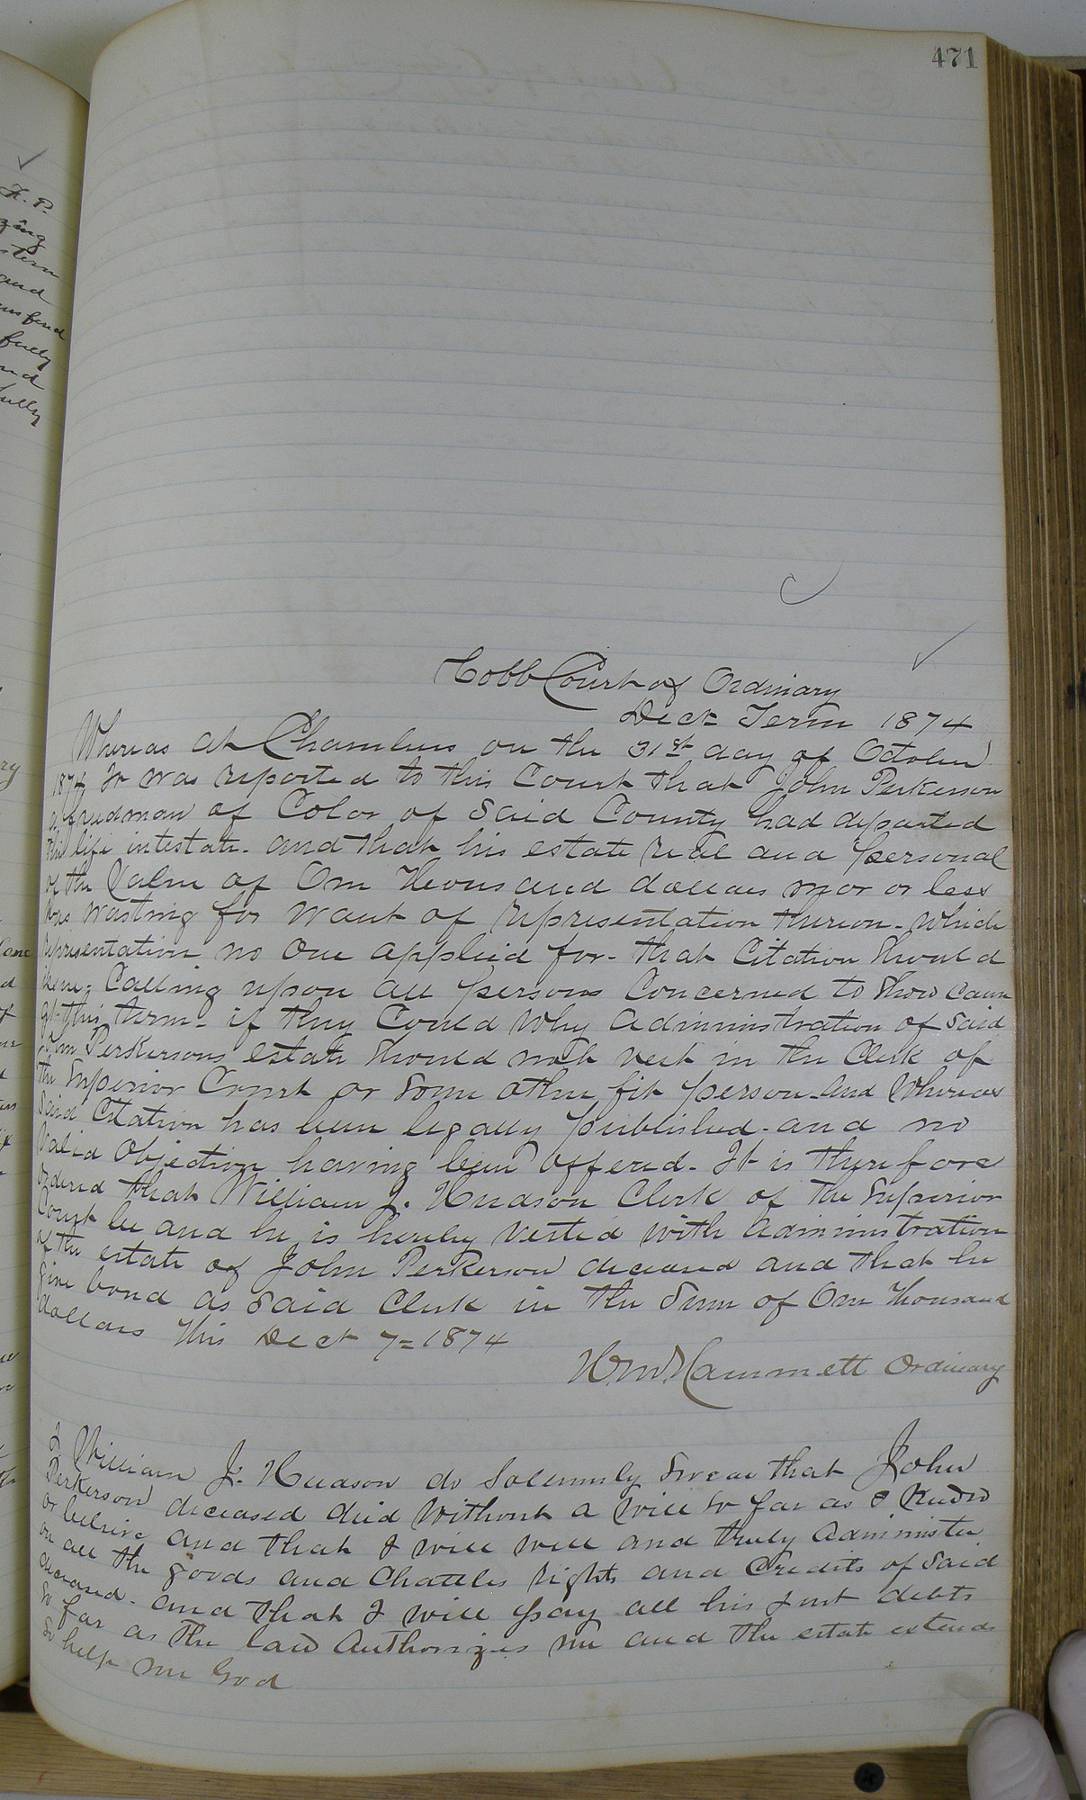 471
Cobb Court of Ordinary
Dect Term 1874
Whereas at Chambers on the 31st day of October
1874 It was reported to this Court that John Perkerson
a freedman of Color of Said County had departed
this life intestate. and that his estate real and personal
of the Value of One Thousand dollars mor or less
was wasting for want of representation thereon. Which
representation no One applied for - that Citation Should
issue, Calling upon all persons Concerned to Show Cause
at this term - if they Could Why Administration of Said
John Perkersons estate Should not vest in the Clerk of
the Superior Court or Some other fit person - and Whereas
Said Citation has been legally published - and no
Valid Objection having been offered - It is therefore
ordered that William J. Hudson Clerk of the Superior
Court be and he is hereby vested with Administration
of the estate of John Perkerson deceased and that he
give bond as Said Clerk in the Sum of One Thousand
dollars This Dect 7= 1874
H. M. Hammett Ordinary
I William J. Hudson do Solemnly Swear that John
Perkerson deceased died without a Will So far as I Know
or believe and that I will well and truly Administer
on all the goods and Chattles rights and Credits of Said
deceased - and that I will pay all his Just debts
So far as the law Authorizes me and the estate extends
So help me God